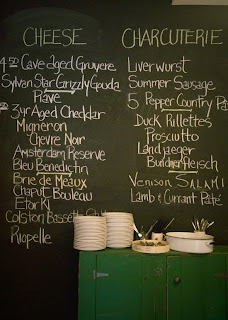 CHEESE
Cave aged Gruyere
Sylvan Star Grizzly Gouda
Piave
3yr Aged Cheddar
Migneron
Chevre Noir
Amsterdam Reserve
Bleu Benedictin
Brie de Meaux
Chaput Bouleau
Etorki
Colston Bassett
Riopelle
CHARCUTERIE
Liverwurst
Summer Sausage
5 Pepper Country Pate
Duck Rillettes
Prosciutto
Landjaeger
Bundnerfleisch
Venison SALAMI
Lamb & Currant Paté